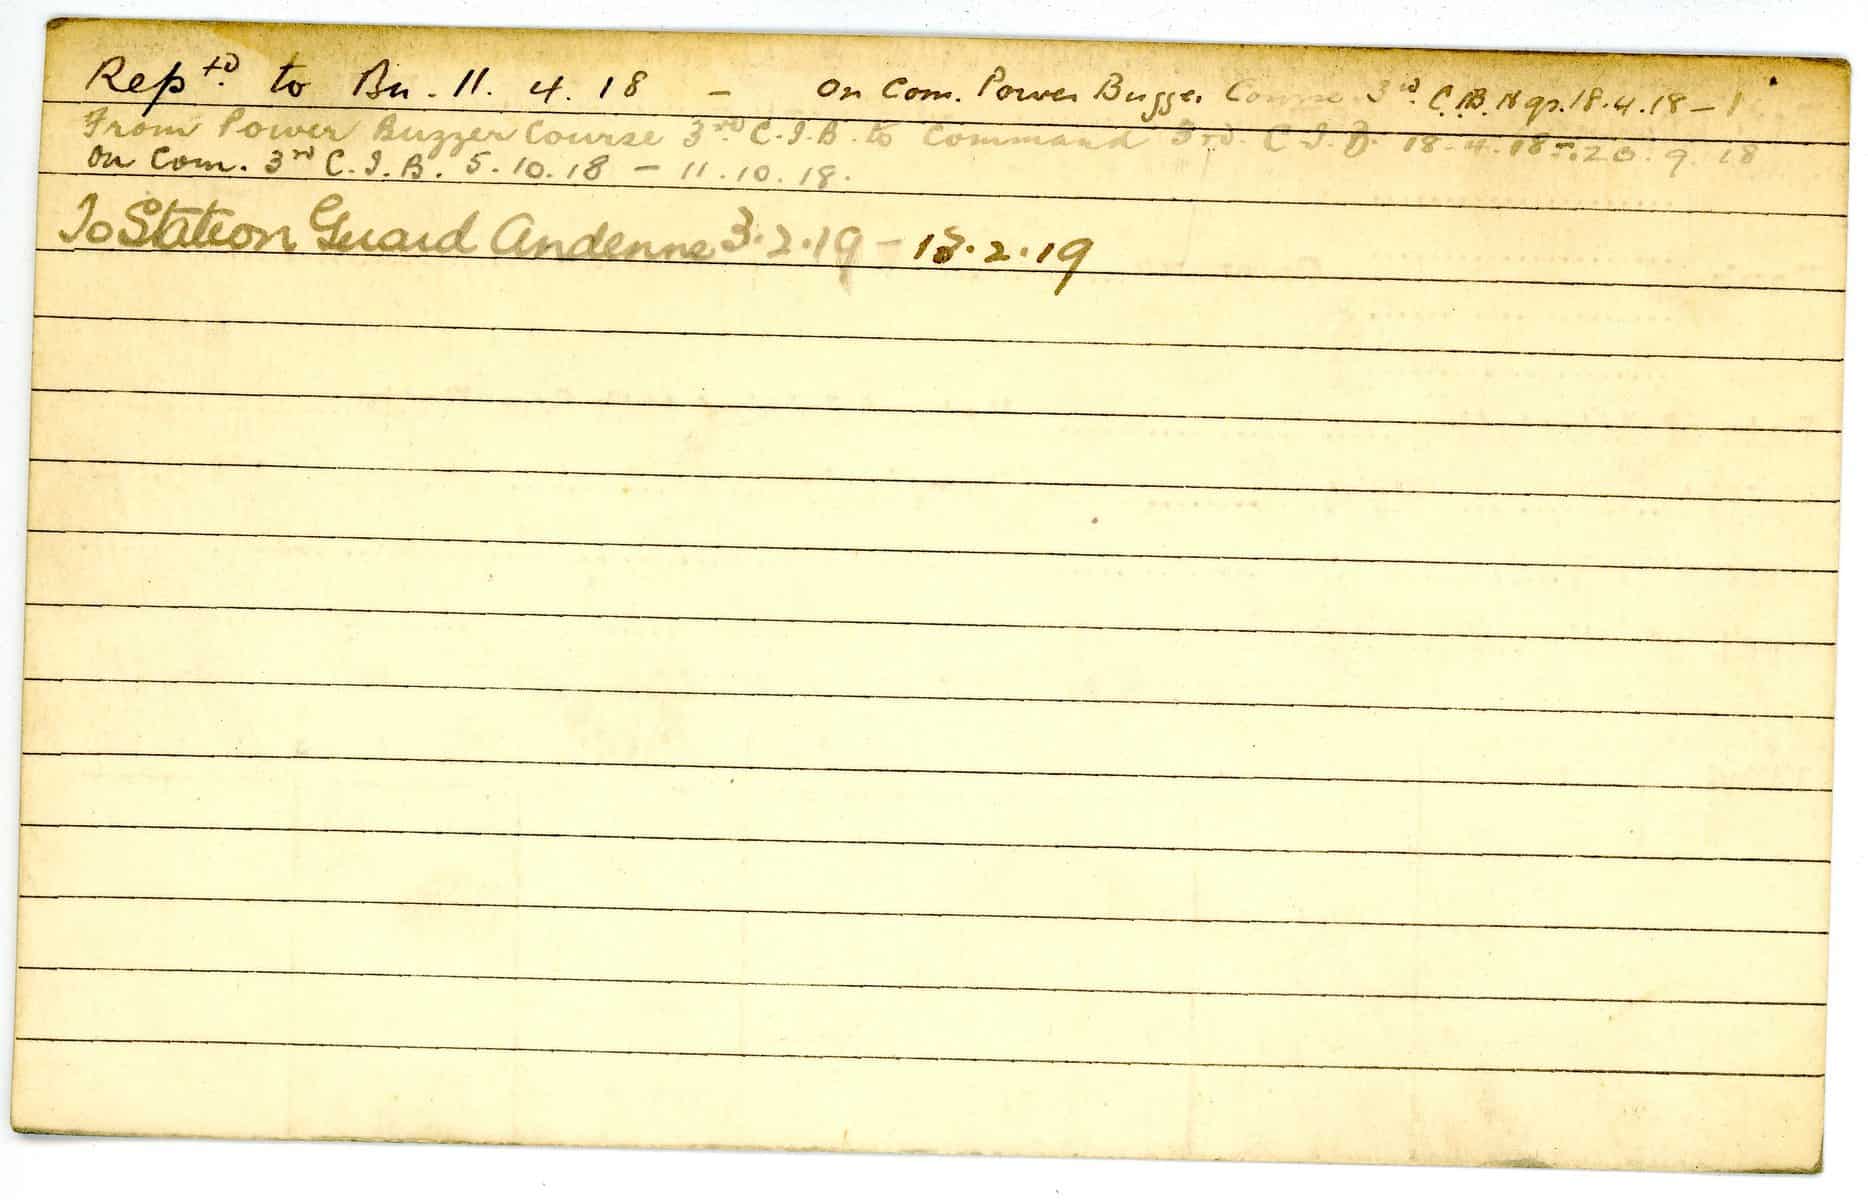 Rep td. to Bn. 11. 4. 18 - On Com. Power Buzzer Course 3rd. C.I.B. Hqrs. 18.4.18 -
From Power Buzzer Course 3rd C.I.B. to Command 3rd. C.I.B. 18.4.18 - 20.9.18
On Com. 3rd C.I.B. 5.10.18 - 11.10.18.
To Station Guard Andenne 3.2.19 - 13.2.19